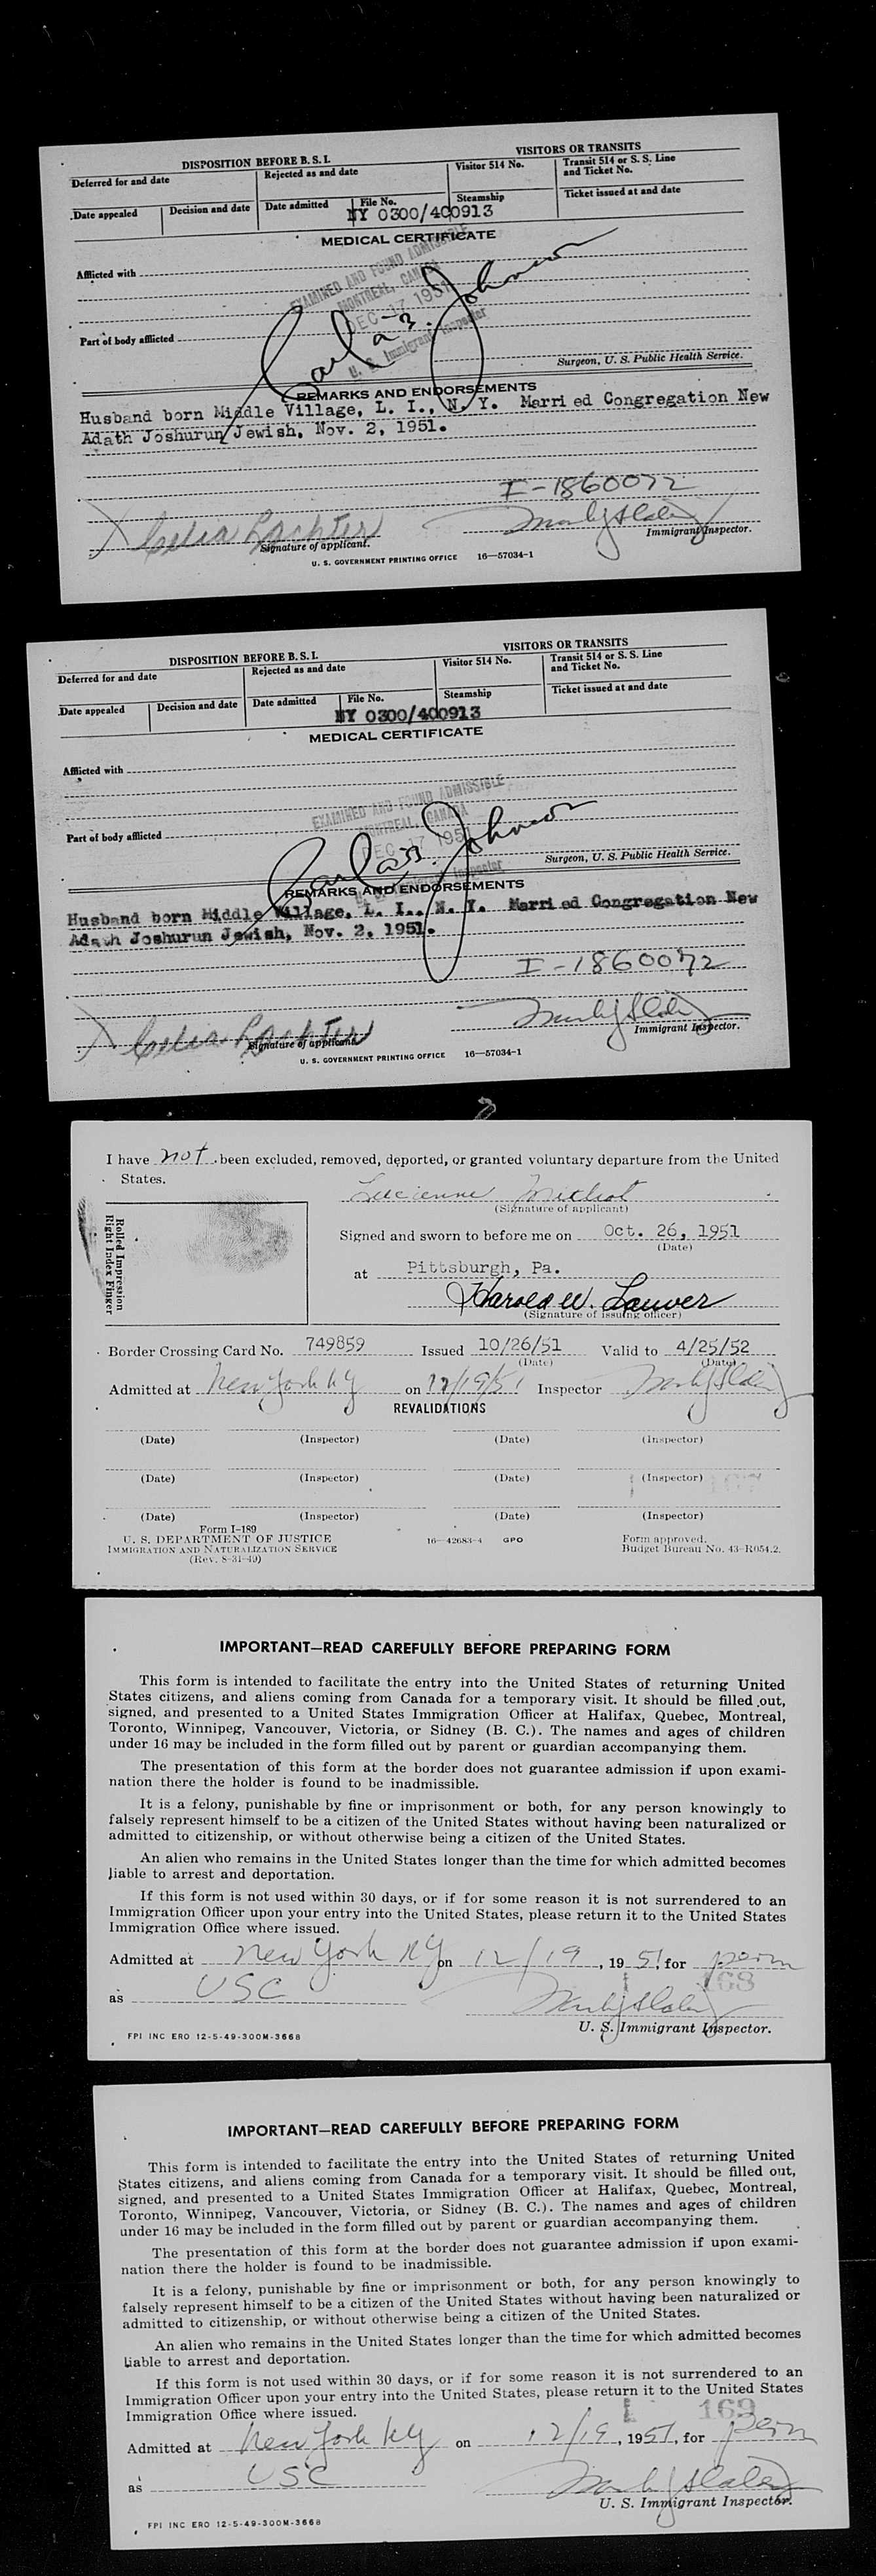 DISPOSITION BEFORE B. S. I.
VISITORS OR TRANSITS
Deferred for and date
Rejected as and date
Visitor 514 No.
Transit 514 or S. S. Line
and Ticket No.
Date appealed
Decision and date
Date admitted
File No.
Steamship
Ticket issued at and date
NY 0300/400913
MEDICAL CERTIFICATE
Afflicted with
EXAMINED AND FOUND ADMISSIBLE
MONTREAL, CANADA
DEC 17 1951
U. S. Immigrant Inspector
Part of body afflicted
Surgeon, U. S. Public Health Service.
REMARKS AND ENDORSEMENTS
Husband born Middle Village, L. I., N. Y. Married Congregation New
Adath Joshurun Jewish, Nov. 2, 1951.
I-1860072
Celia
Signature of applicant.
Immigrant Inspector.
U. S. GOVERNMENT PRINTING OFFICE 16—57034-1
DISPOSITION BEFORE B. S. I.
VISITORS OR TRANSITS
Deferred for and date
Rejected as and date
Visitor 514 No.
Transit 514 or S. S. Line
and Ticket No.
Date appealed
Decision and date
Date admitted
File No.
Steamship
Ticket issued at and date
NY 0300/400913
MEDICAL CERTIFICATE
Afflicted with
EXAMINED AND FOUND ADMISSIBLE
MONTREAL, CANADA
DEC 17 1951
Part of body afflicted
Johnson
Surgeon, U. S. Public Health Service.
REMARKS AND ENDORSEMENTS
Husband born Middle Village, L. I., N. Y. Married Congregation New
Adath Joshurun Jewish, Nov. 2, 1951.
I-1860072
Celia
Signature of applicant.
Immigrant Inspector.
U. S. GOVERNMENT PRINTING OFFICE 16—57034-1
I have not been excluded, removed, deported, or granted voluntary departure from the United
States.
Lucienne
(Signature of applicant)
Rolled Impression
Right Index Finger
Signed and sworn to before me on Oct. 26, 1951
(Date)
at Pittsburgh, Pa.
Harold W. Lauver
(Signature of issuing officer)
Border Crossing Card No. 749859 Issued 10/26/51 Valid to 4/25/52
(Date) (Date)
Admitted at New York NY on 12/19/51 Inspector
REVALIDATIONS
(Date) (Inspector) (Date) (Inspector)
(Date) (Inspector) (Date) (Inspector)
167
(Date) (Inspector) (Date) (Inspector)
Form I-189
U. S. DEPARTMENT OF JUSTICE
IMMIGRATION AND NATURALIZATION SERVICE
(Rev. 8-31-49)
16—42683-4 GPO
Form approved.
Budget Bureau No. 43-R054.2.
IMPORTANT—READ CAREFULLY BEFORE PREPARING FORM
This form is intended to facilitate the entry into the United States of returning United
States citizens, and aliens coming from Canada for a temporary visit. It should be filled out,
signed, and presented to a United States Immigration Officer at Halifax, Quebec, Montreal,
Toronto, Winnipeg, Vancouver, Victoria, or Sidney (B. C.). The names and ages of children
under 16 may be included in the form filled out by parent or guardian accompanying them.
The presentation of this form at the border does not guarantee admission if upon exami-
nation there the holder is found to be inadmissible.
It is a felony, punishable by fine or imprisonment or both, for any person knowingly to
falsely represent himself to be a citizen of the United States without having been naturalized or
admitted to citizenship, or without otherwise being a citizen of the United States.
An alien who remains in the United States longer than the time for which admitted becomes
liable to arrest and deportation.
If this form is not used within 30 days, or if for some reason it is not surrendered to an
Immigration Officer upon your entry into the United States, please return it to the United States
Immigration Office where issued.
Admitted at New York NY on 12/19, 1951, for perm
168
as USC
U. S. Immigrant Inspector.
FPI INC ERO 12-5-49-300M-3668
IMPORTANT—READ CAREFULLY BEFORE PREPARING FORM
This form is intended to facilitate the entry into the United States of returning United
States citizens, and aliens coming from Canada for a temporary visit. It should be filled out,
signed, and presented to a United States Immigration Officer at Halifax, Quebec, Montreal,
Toronto, Winnipeg, Vancouver, Victoria, or Sidney (B. C.). The names and ages of children
under 16 may be included in the form filled out by parent or guardian accompanying them.
The presentation of this form at the border does not guarantee admission if upon exami-
nation there the holder is found to be inadmissible.
It is a felony, punishable by fine or imprisonment or both, for any person knowingly to
falsely represent himself to be a citizen of the United States without having been naturalized or
admitted to citizenship, or without otherwise being a citizen of the United States.
An alien who remains in the United States longer than the time for which admitted becomes
liable to arrest and deportation.
If this form is not used within 30 days, or if for some reason it is not surrendered to an
Immigration Officer upon your entry into the United States, please return it to the United States
Immigration Office where issued.
169
Admitted at New York NY on 12/19, 1951, for perm
as USC
U. S. Immigrant Inspector.
FPI INC ERO 12-5-49-300M-3668